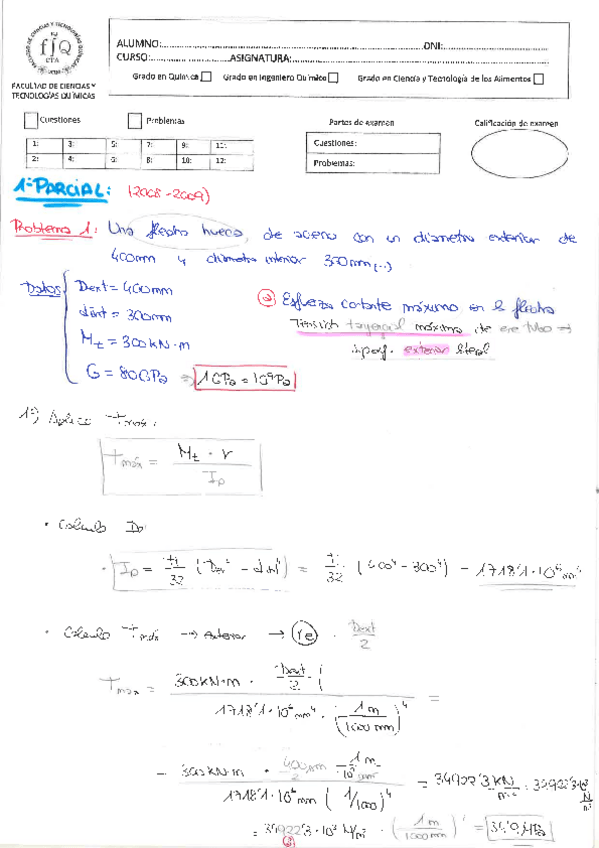 FACULTAD DE CIENCIAS Y TECNOLOGÍAS QUÍMICAS
fJQ
FACULTAD DE CIENCIAS Y
TECNOLOGÍAS QUÍMICAS
ALUMNO: DNI:
CURSO: ASIGNATURA:
Grado en Química Grado en Ingeniero Químico Grado en Ciencia y Tecnología de los Alimentos
Cuestiones Problemas Partes de examen Calificación de examen
1: 3: 5: 7: 9: 11:
2: 4: 6: 8: 10: 12:
Cuestiones:
Problemas:
1º PARCIAL: (2008-2009)
Problema 1: Una flecha hueca, de acero con un diametro exterior de
400mm y diametro interior 300mm (...)
Datos Dext = 400mm
dint = 300mm
Mt = 300 kN·m
G = 80GPa ⇒ 1GPa = 10⁹Pa
a) Esfuerzo cortante máximo en la flecha
Tensión tangencial máxima de ese tubo ⇒
superf. exterior
1º) Aplico τmáx:
τmáx = Mt · r / Ip
· Calculo Ip:
· Ip = π/32 (Dext⁴ - dint⁴) = π/32 (400⁴ - 300⁴) = 1718'1·10⁶ mm⁴
· Calculo τmáx → exterior → re · Dext/2
τmáx = 300kN·m · Dext/2 · ( / 1718'1·10⁶ mm⁴ · (1m/1000mm)⁴ =
= 300kN·m · 400mm/2 · 1m/10³mm / 1718'1·10⁶ mm (1/1000)⁴ = 34922'3 kN/m² = 34922'3·10³ N/m²
= 34922'3·10³ N/m² · (1m/1000mm)² = 34'9 MPa